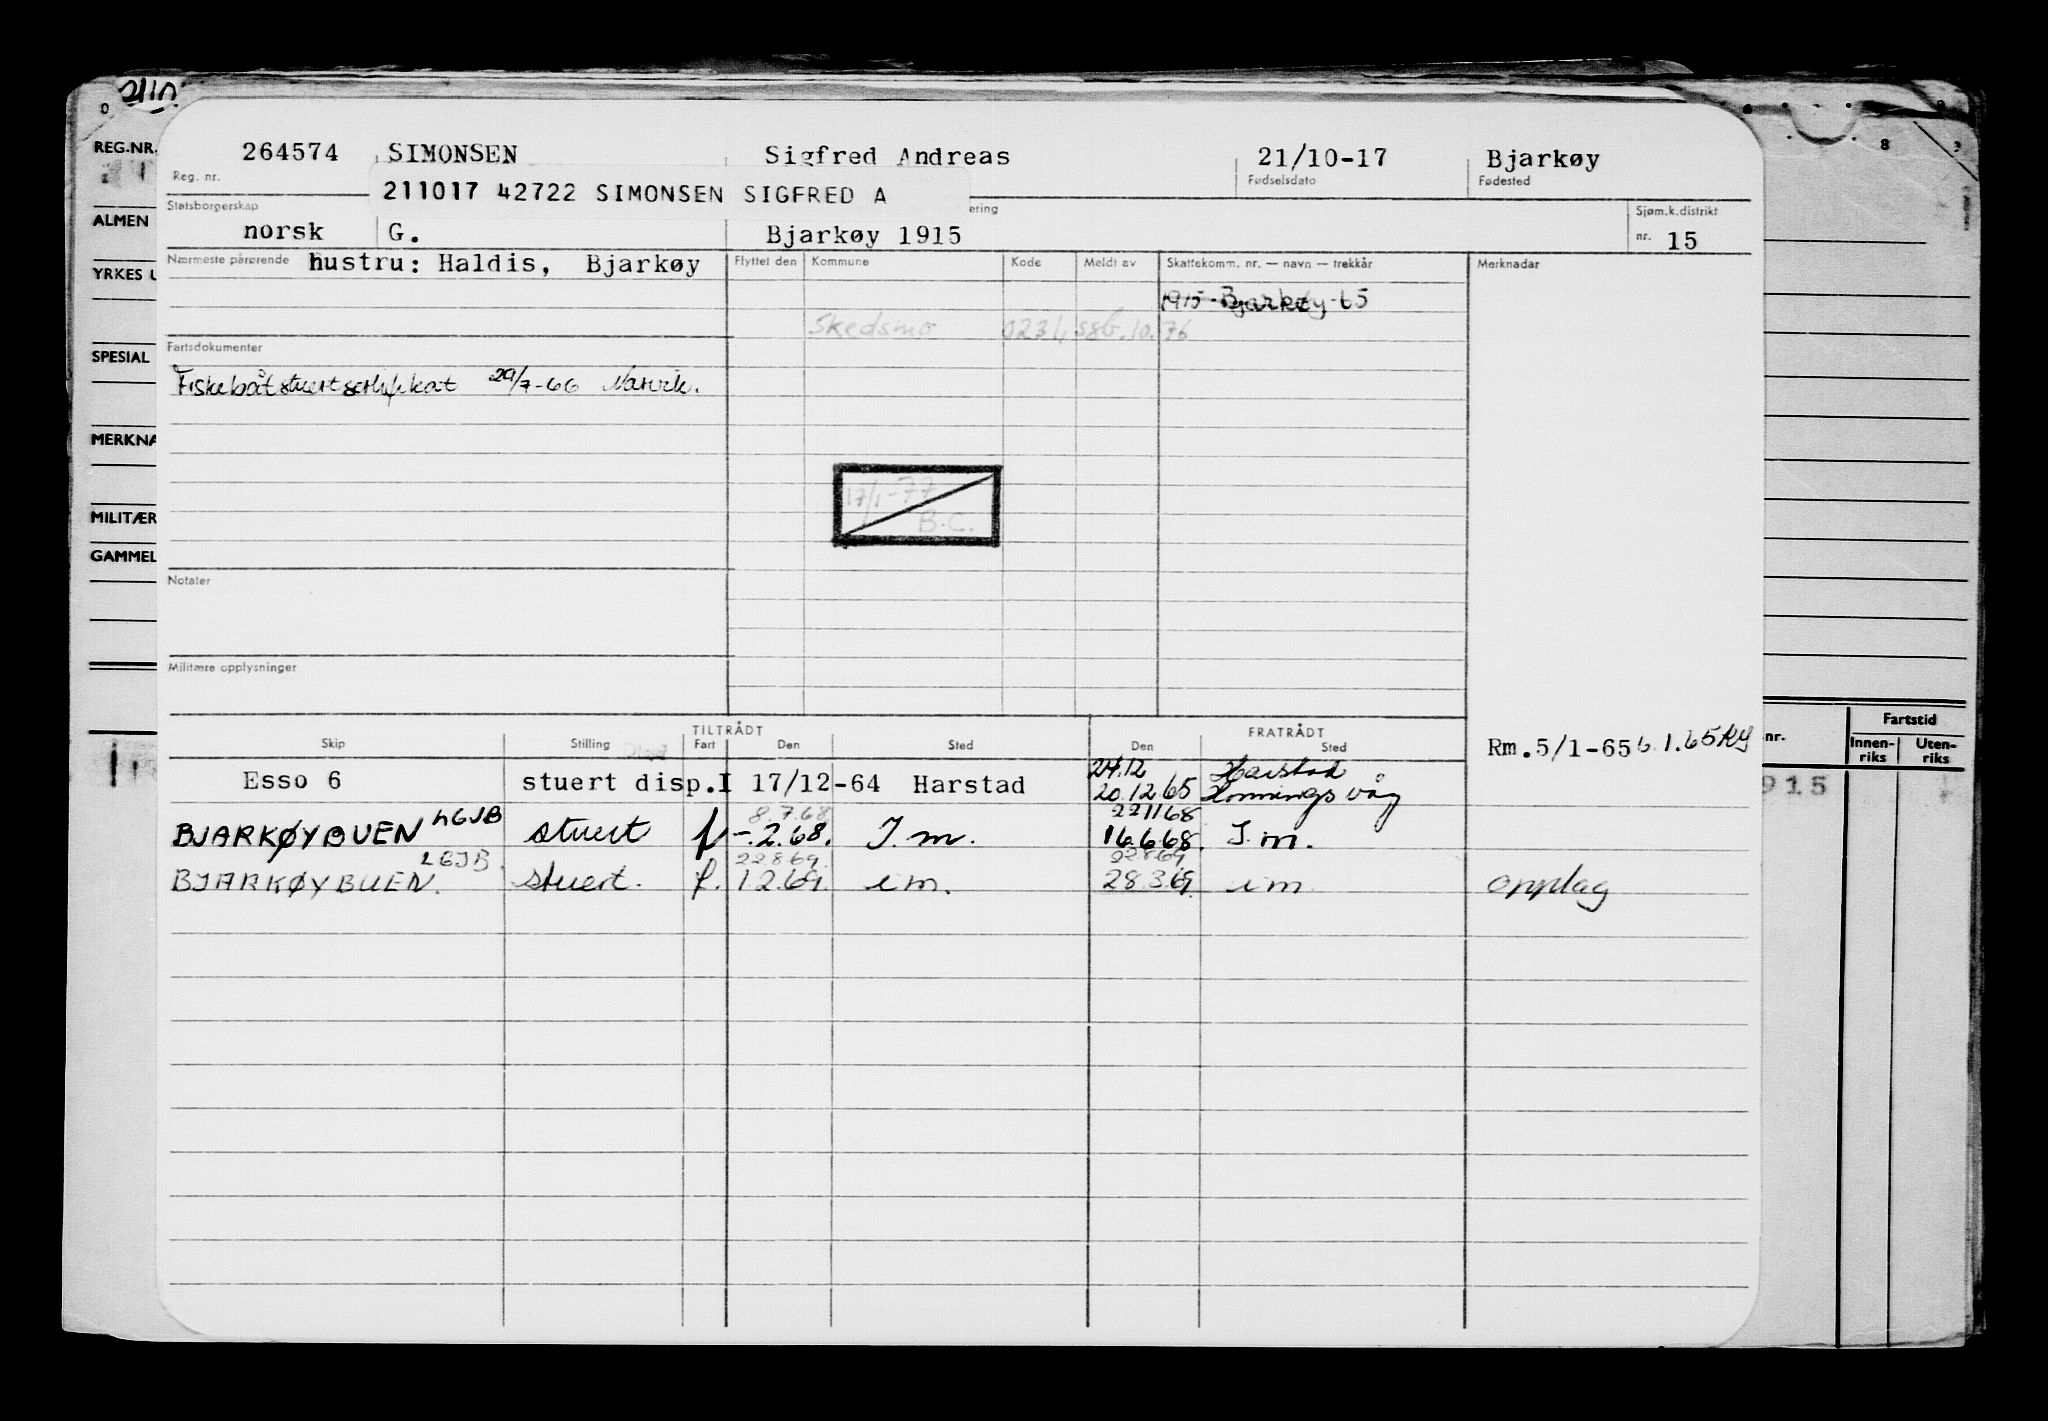 REG.NR.
ALMEN
YRKES U
SPESIAL
MERKNA
MILITÆR
GAMMEL
264574 SIMONSEN Sigfred Andreas 21/10-17 Bjarkøy
Reg. nr. Fødselsdato Fødested
211017 42722 SIMONSEN SIGFRED A
Statsborgerskap ering Sjøm.k.distrikt
norsk G. Bjarkøy 1915 nr. 15
Nærmeste pårørende hustru: Haldis, Bjarkøy Flyttet den Kommune Kode Meldt av Skattekomm. nr. — navn — trekkår Merknadar
1915 Bjarkøy-65
Skedsmo 0231 SSB.10.76
Fartsdokumenter
Fiskebåtstuertsertifikat 29/7-66 Narvik.
17/1-77
B.C.
Notater
Militære opplysninger
TILTRÅDT FRATRÅDT
Skip Stilling Fart Den Sted Den Sted
Rm.5/1-65 6.1.65 RY
24.12 Harstad
Esso 6 stuert disp.I 17/12-64 Harstad 20.12.65 Honningsvåg
8.7.68 221168
BJARKØYBUEN LGJB stuert f -.2.68. I.m. 16.6.68. I.m.
22869. 22869
BJARKØYBUEN. LGJB stuert. f. 1.2.69. i m. 28.3.69. i m opplag
nr. Fartstid
Innen-riks Uten-riks
915